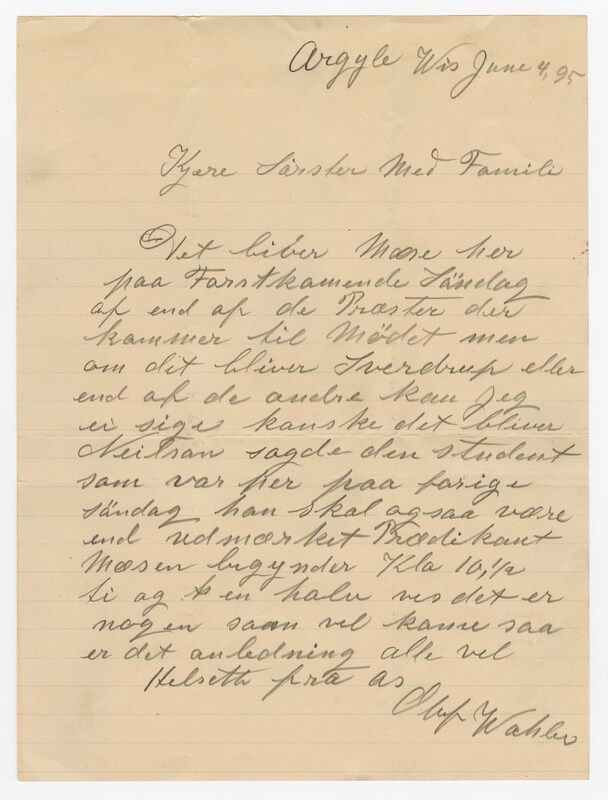 Argyle Wis June 4, 95
Kjære Sørster Med Famili
Det biber Mæse her
paa Forstkamende Söndag
af end af de Præster der
kammer til Mödet men
om det bliver Sverdrup eller
end af de andre kan Jeg
ei sige kanske det bliver
Neilsan sagde den student
som var her paa forige
söndag han skal ogsaa være
end udmærket Prædikant
Mæsen begynder Kla 10,1/2
ti og en halv ves det er
nogen saam vel kame saa
er det anledning alle vel
Helseth fra as
Oluf Wahler